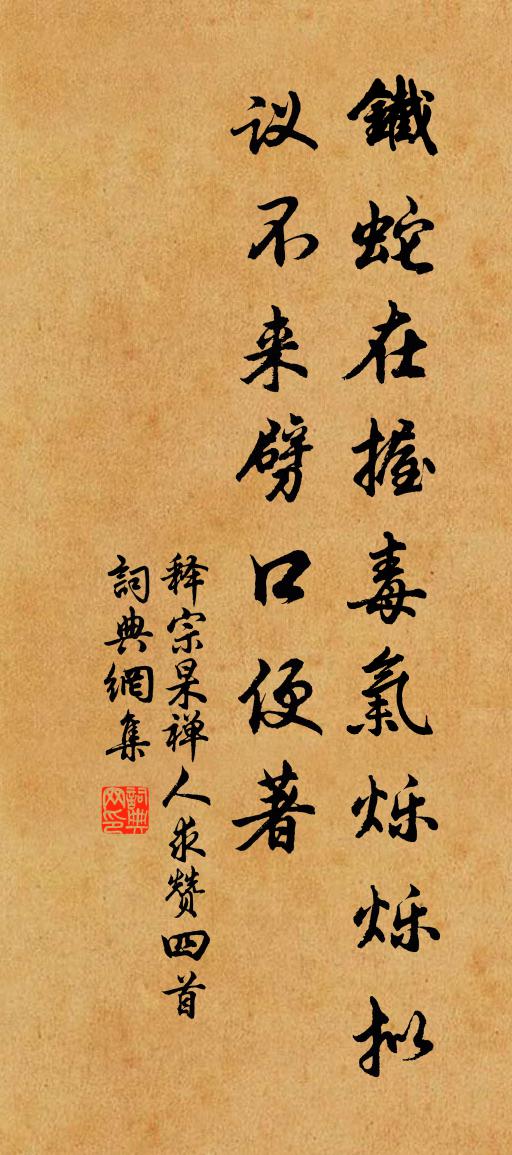 鐵蛇在握毒氣烁烁拟
议不来劈口便著
释宗杲禅人求赞四首
詞典網集
詞典网印